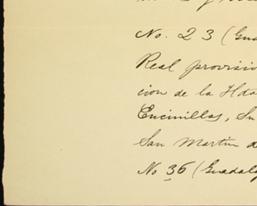 No. 23 (Gua
Real provisio
cion de la Hda
Encinillas, Su
San Martin d
No 36 (Guadalu